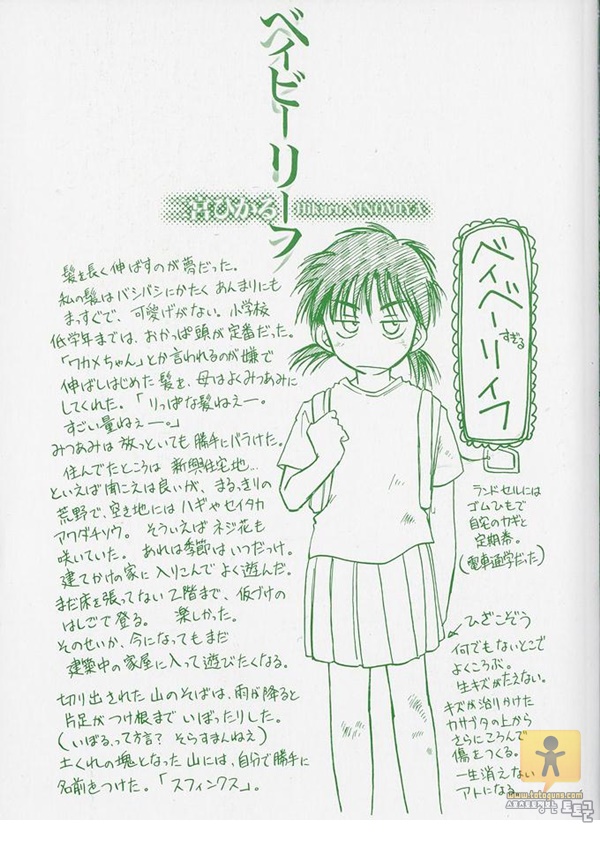 ベイビーリーフ
宮ひかる Hikaru SINOMIYA
髪を長く伸ばすのが夢だった。
私の髪はバシバシにかたく あんまりにも
まっすぐで、可愛げがない。小学校
低学年までは、おかっぱ頭が定番だった。
「ワカメちゃん」とか言われるのが嫌で
伸ばしはじめた髪を、母はよくみつあみに
してくれた。「りっぱな髪ねえー。
すごい量ねえー。」
みつあみは放っといても勝手にバラけた。
住んでたところは 新興住宅地…
といえば聞こえは良いが、まるっきりの
荒野で、空き地にはハギやセイタカ
アワダチソウ。そういえばネジ花も
咲いていた。あれは季節はいつだっけ。
建てかけの家に入りこんでよく遊んだ。
まだ床を張ってない2階まで、仮づけの
はしごで登る。楽しかった。
そのせいか、今になってもまだ
建築中の家屋に入って遊びたくなる。
切り出された山のそばは、雨が降ると
片足がつけ根までいぼったりした。
(いぼる、って方言? そらすまんねえ)
土くれの塊となった山には、自分で勝手に
名前をつけた。「スフィンクス」。
ベイベーリイフ
すぎる
ランドセルには
ゴムひもで
自宅のカギと
定期券。
(電車通学だった)
ひざこぞう
何でもないとこで
よくころぶ。
生キズがたえない。
キズが治りかけた
カサブタの上から
さらにころんで
傷をつくる。
一生消えない
アトになる。
www.totoguns.com
토토군